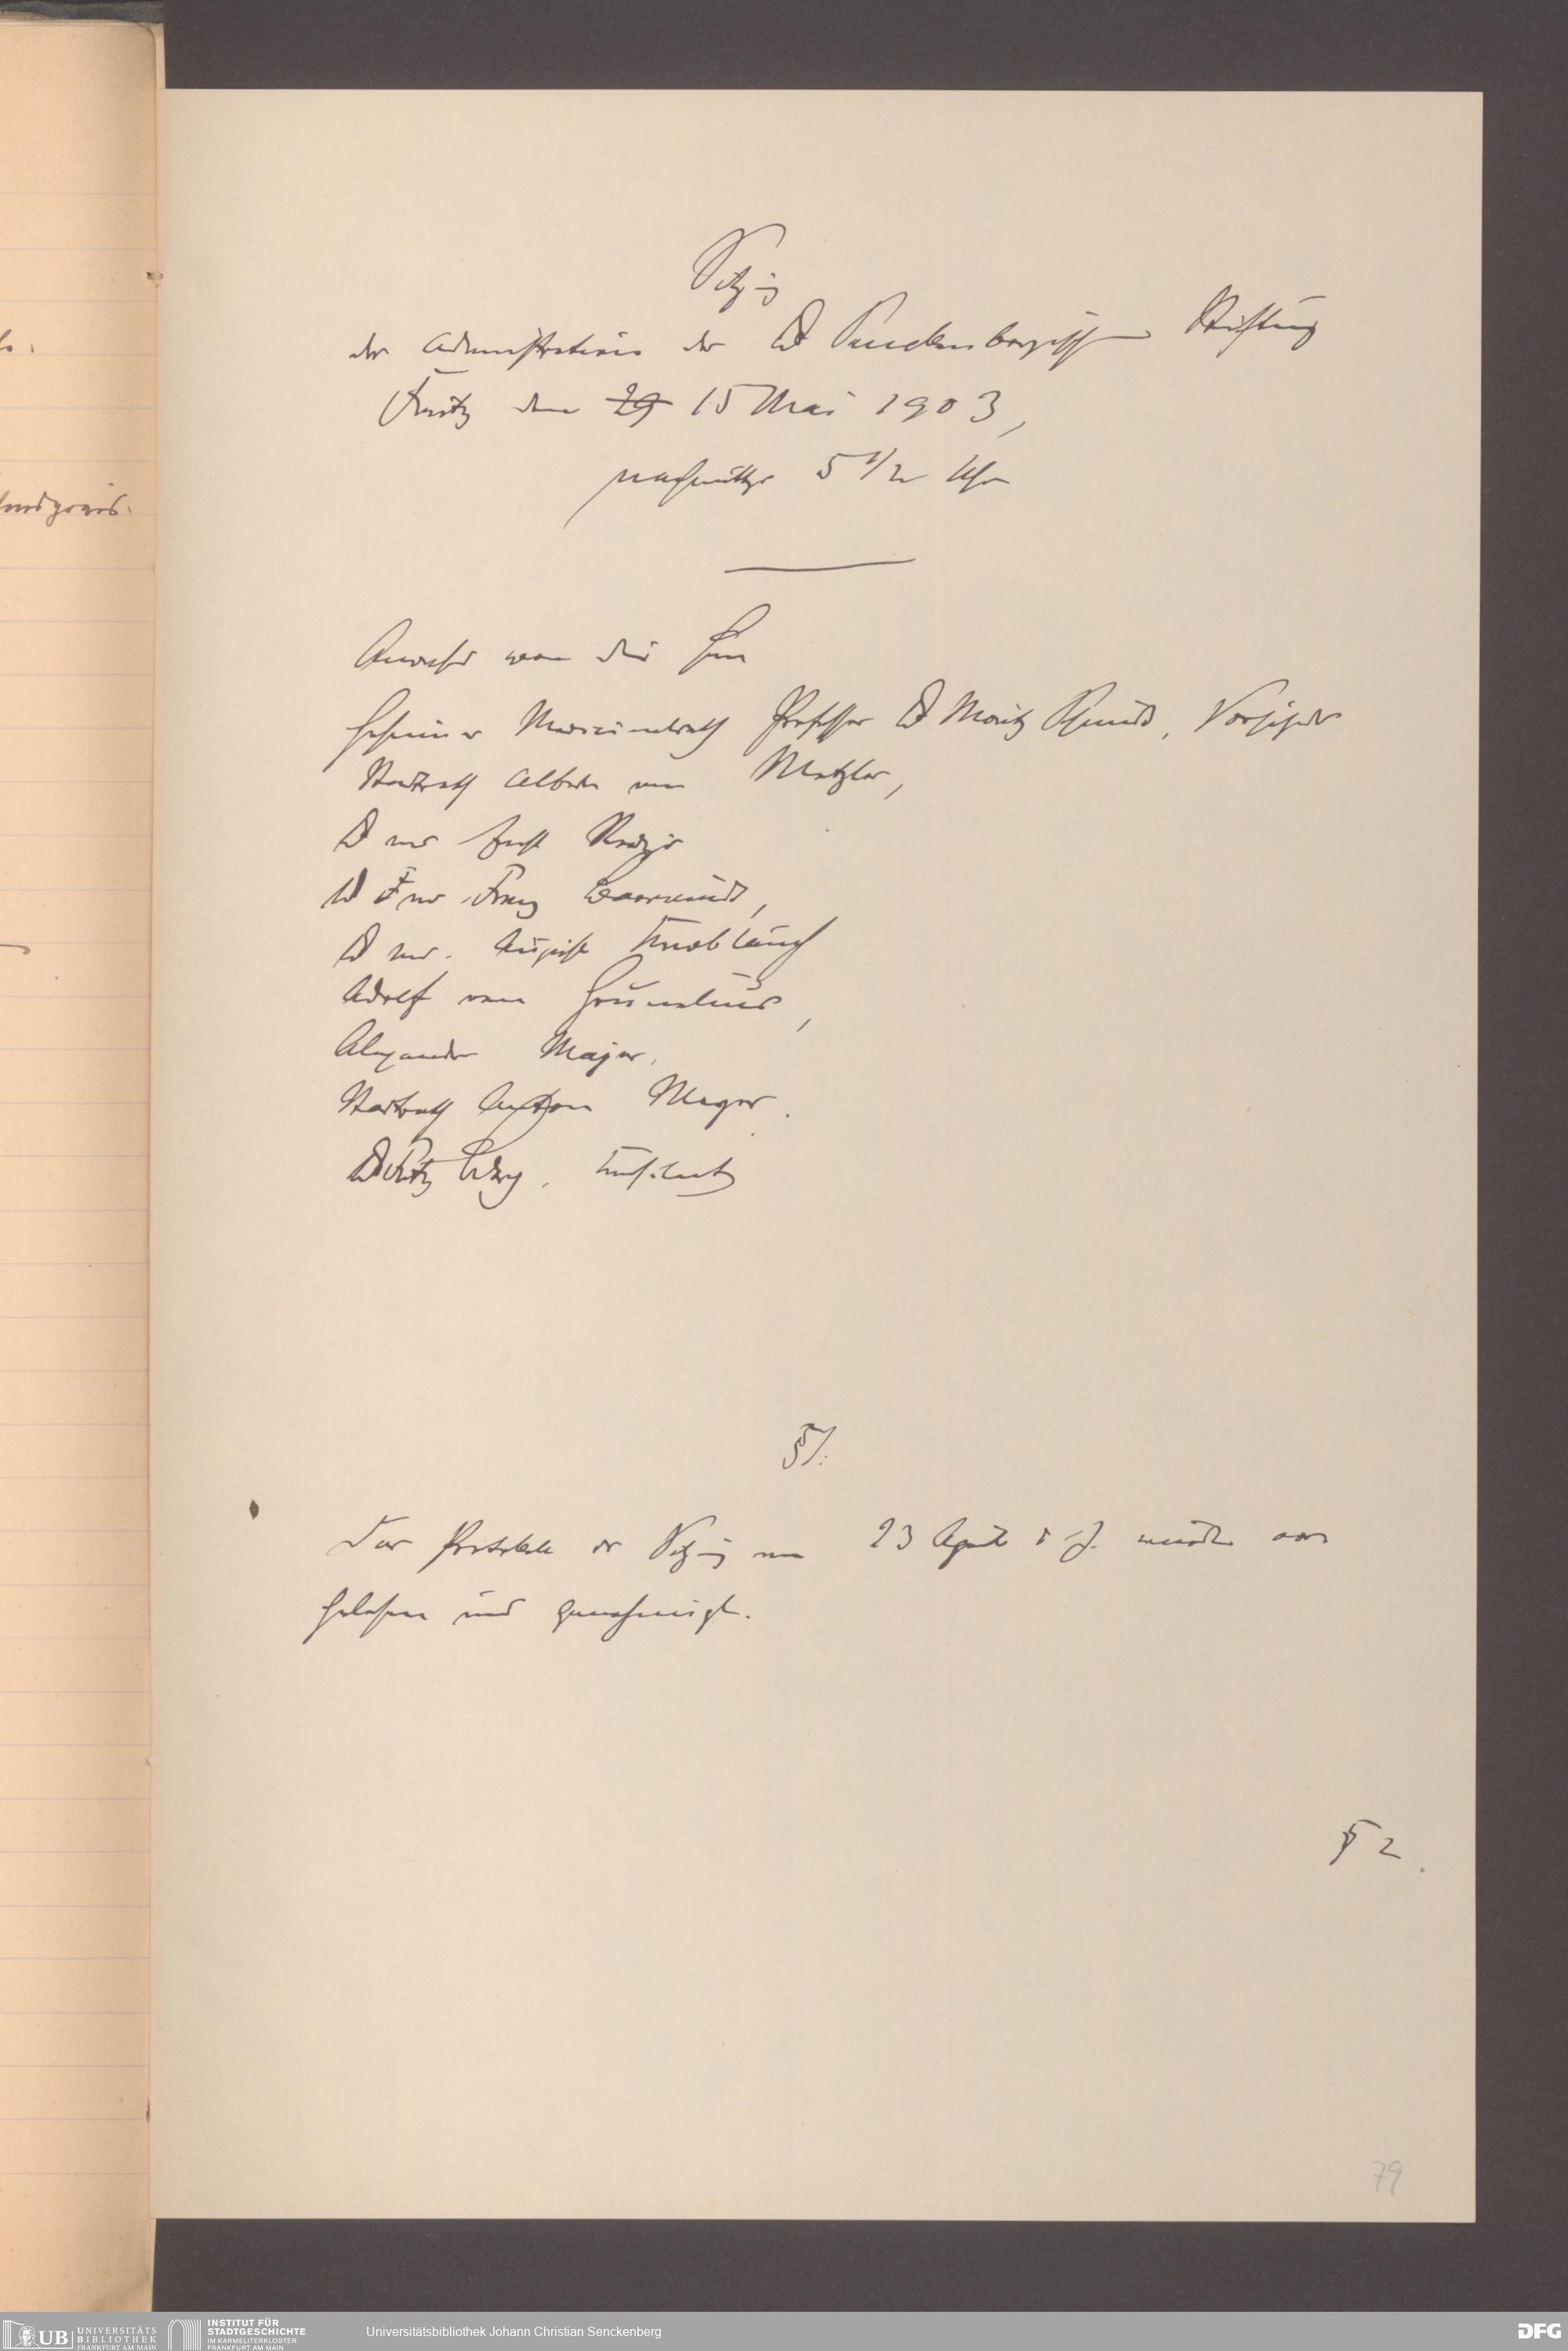 Sitzung
der Administration der Dr Senckenbergischen Stiftung
Freitag den 29 15 Mai 1903,
nachmittgs 5 1/2 Uhr
Anwesend waren die Herren
Geheimer Medicinalrath Professor Dr Moritz Schmidt, Vorsitzender
Stadtrath Albert von Metzler,
Dr med Ernst Roediger
Dr med Franz
Dr med. August Knoblauch
Adolf von Grunelius,
Alexander Majer,
Stadtrath Anton Meyer.
Dr Fritz Berg, Konsulent
§ 1.
Das Protokoll der Sitzung vom 23 April d. J. wurde vor
gelesen und genehmigt.
§ 2.
79
UB UNIVERSITÄTS
BIBLIOTHEK
FRANKFURT AM MAIN
INSTITUT FÜR
STADTGESCHICHTE
IM KARMELITERKLOSTER
FRANKFURT AM MAIN
Universitätsbibliothek Johann Christian Senckenberg
DFG